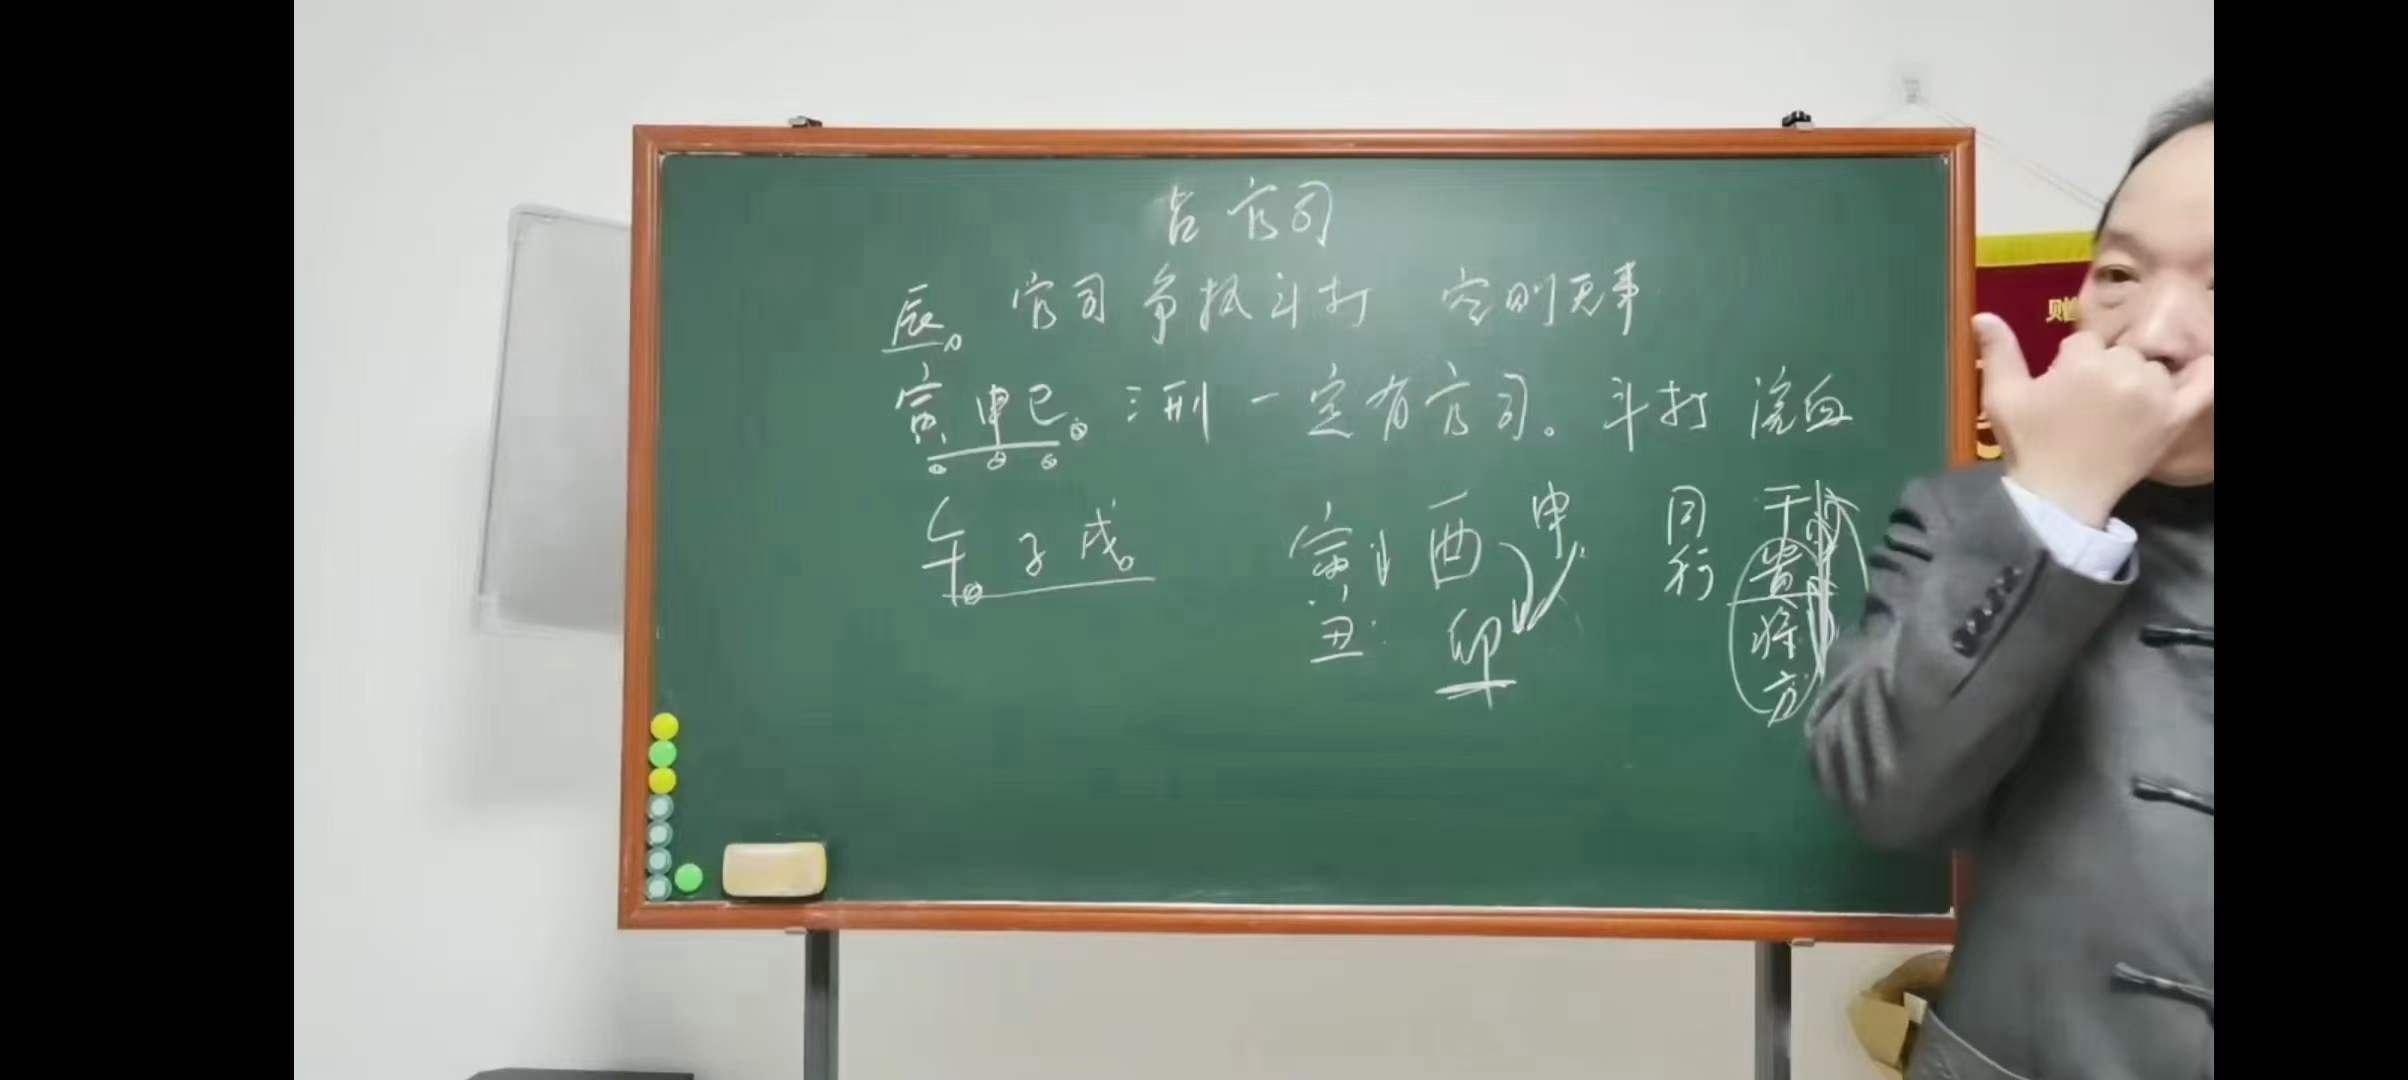 占官司
辰 官司争执斗打 空则无事
寅申巳 三刑一定有官司。斗打 流血
午子戌 寅 酉 申 同行 干
丑 卯 贵
将
方
赠